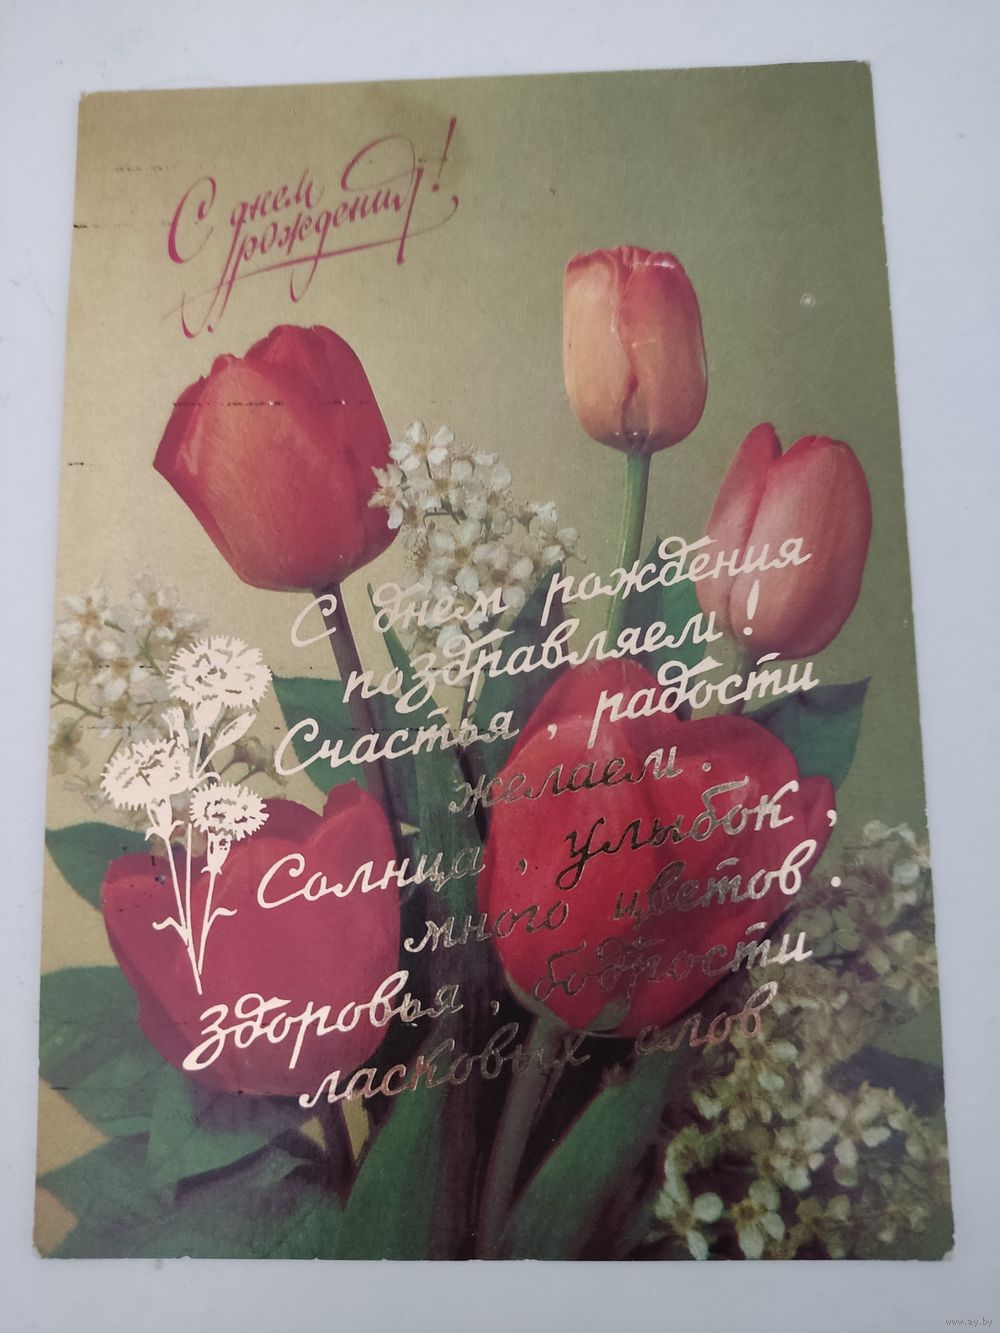 С днем
рождения!
С днём рождения
поздравляем!
Счастья, радости
желаем.
Солнца, улыбок,
много цветов.
Здоровья, бодрости
ласковых слов
www.ay.by